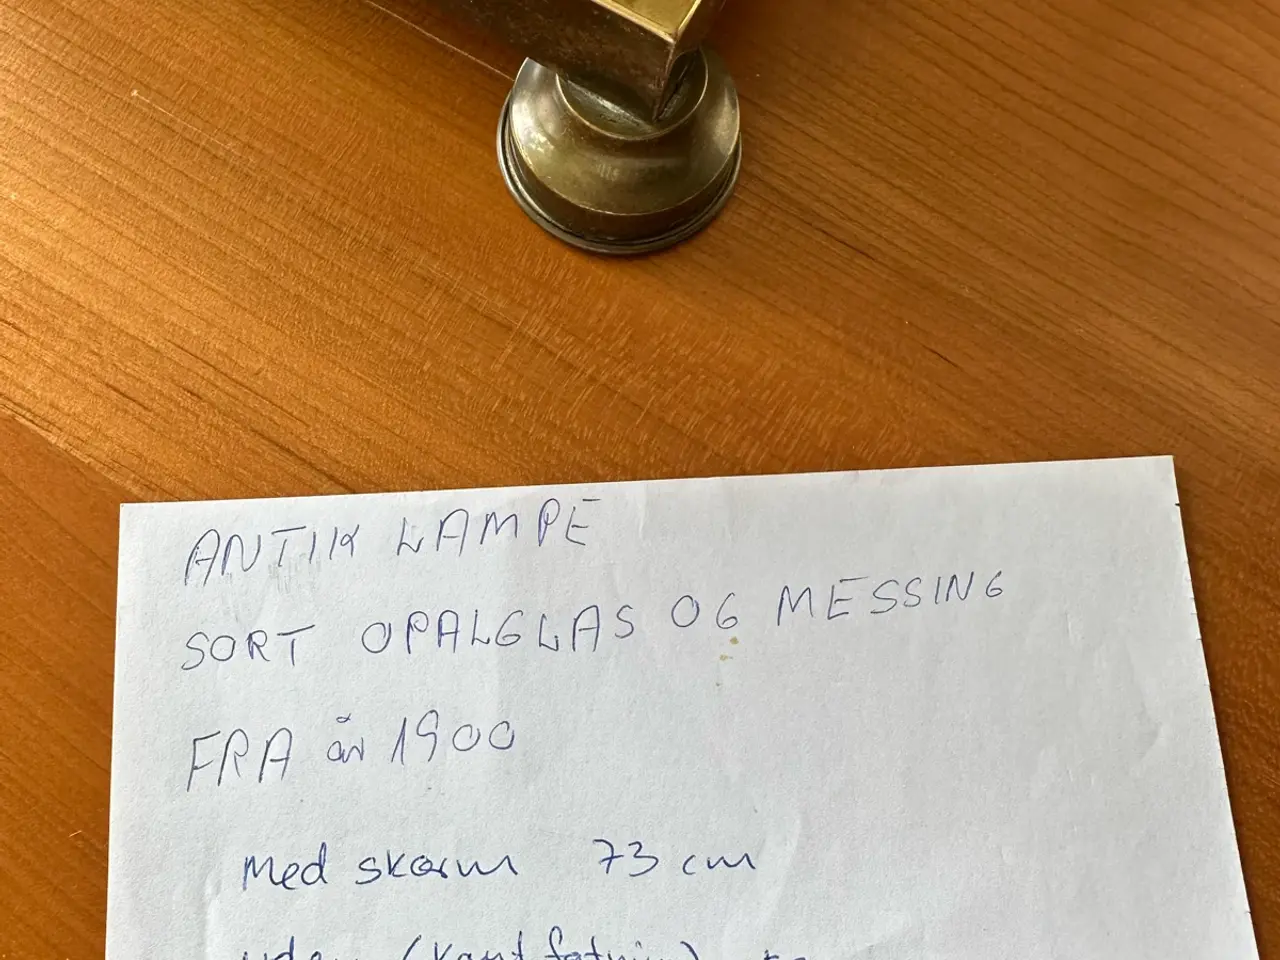 ANTIK LAMPE
SORT OPALGLAS OG MESSING
FRA år 1900
Med skærm 73 cm
uden (kant fatning)